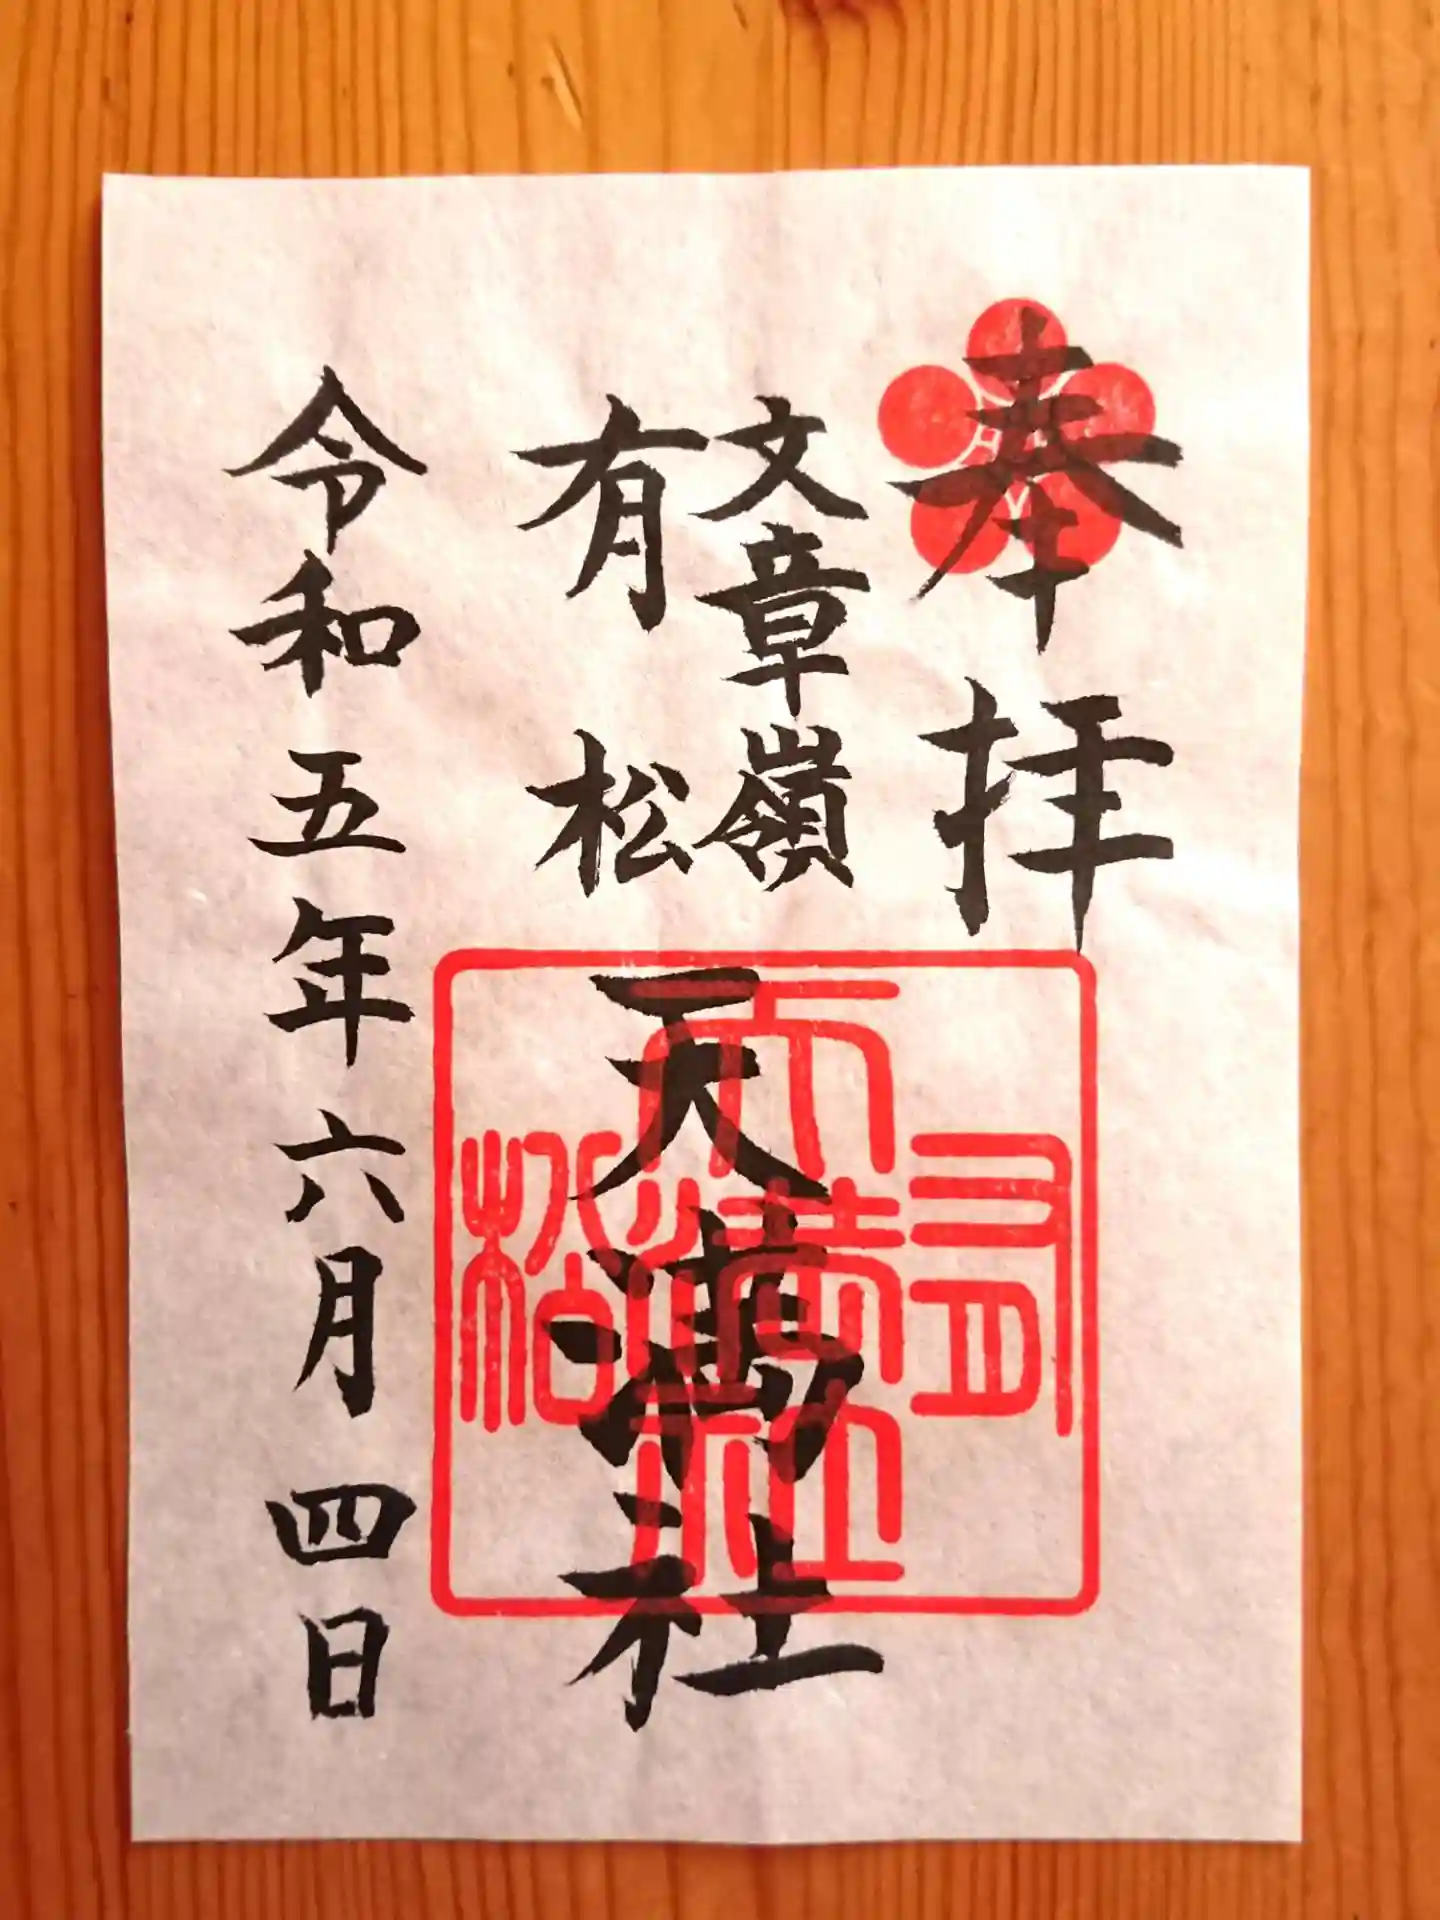 奉拝
文章嶺
有松天満社
令和五年六月四日
有松
天満社